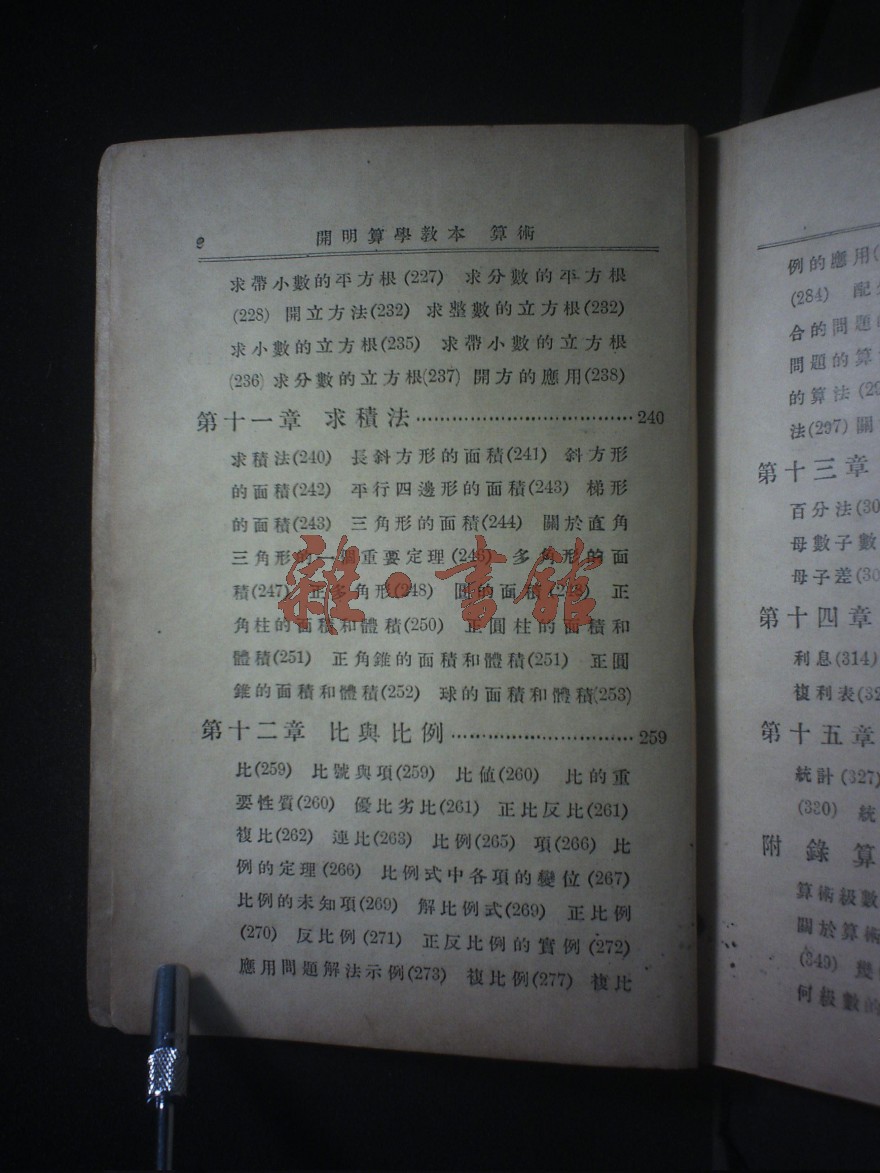 開明算學教本 算術
求帶小數的平方根(227) 求分數的平方根
(228) 開立方法(232) 求整數的立方根(232)
求小數的立方根(235) 求帶小數的立方根
(236) 求分數的立方根(237) 開方的應用(238)
第十一章 求積法……………………………240
求積法(240) 長斜方形的面積(241) 斜方形
的面積(242) 平行四邊形的面積(243) 梯形
的面積(243) 三角形的面積(244) 關於直角
三角形的一個重要定理(246) 多角形的面
積(247) 正多角形(248) 圓的面積(228) 正
角柱的面積和體積(250) 正圓柱的面積和
體積(251) 正角錐的面積和體積(251) 正圓
錐的面積和體積(252) 球的面積和體積(253)
第十二章 比與比例…………………………259
比(259) 比號與項(259) 比値(260) 比的重
要性質(260) 優比劣比(261) 正比反比(261)
複比(262) 連比(263) 比例(265) 項(266) 比
例的定理(266) 比例式中各項的變位(267)
比例的未知項(269) 解比例式(269) 正比例
(270) 反比例(271) 正反比例的實例(272)
應用問題解法示例(273) 複比例(277) 複比
雜·書館
例的應用(
(284) 配
合的問題
問題的算
的算法(29
法(297) 關
第十三章
百分法(30
母數子數
母子差(30
第十四章
利息(314)
複利表(32
第十五章
統計(327)
(330) 統
附錄 算
算術級數
關於算術
(349) 幾
何級數的